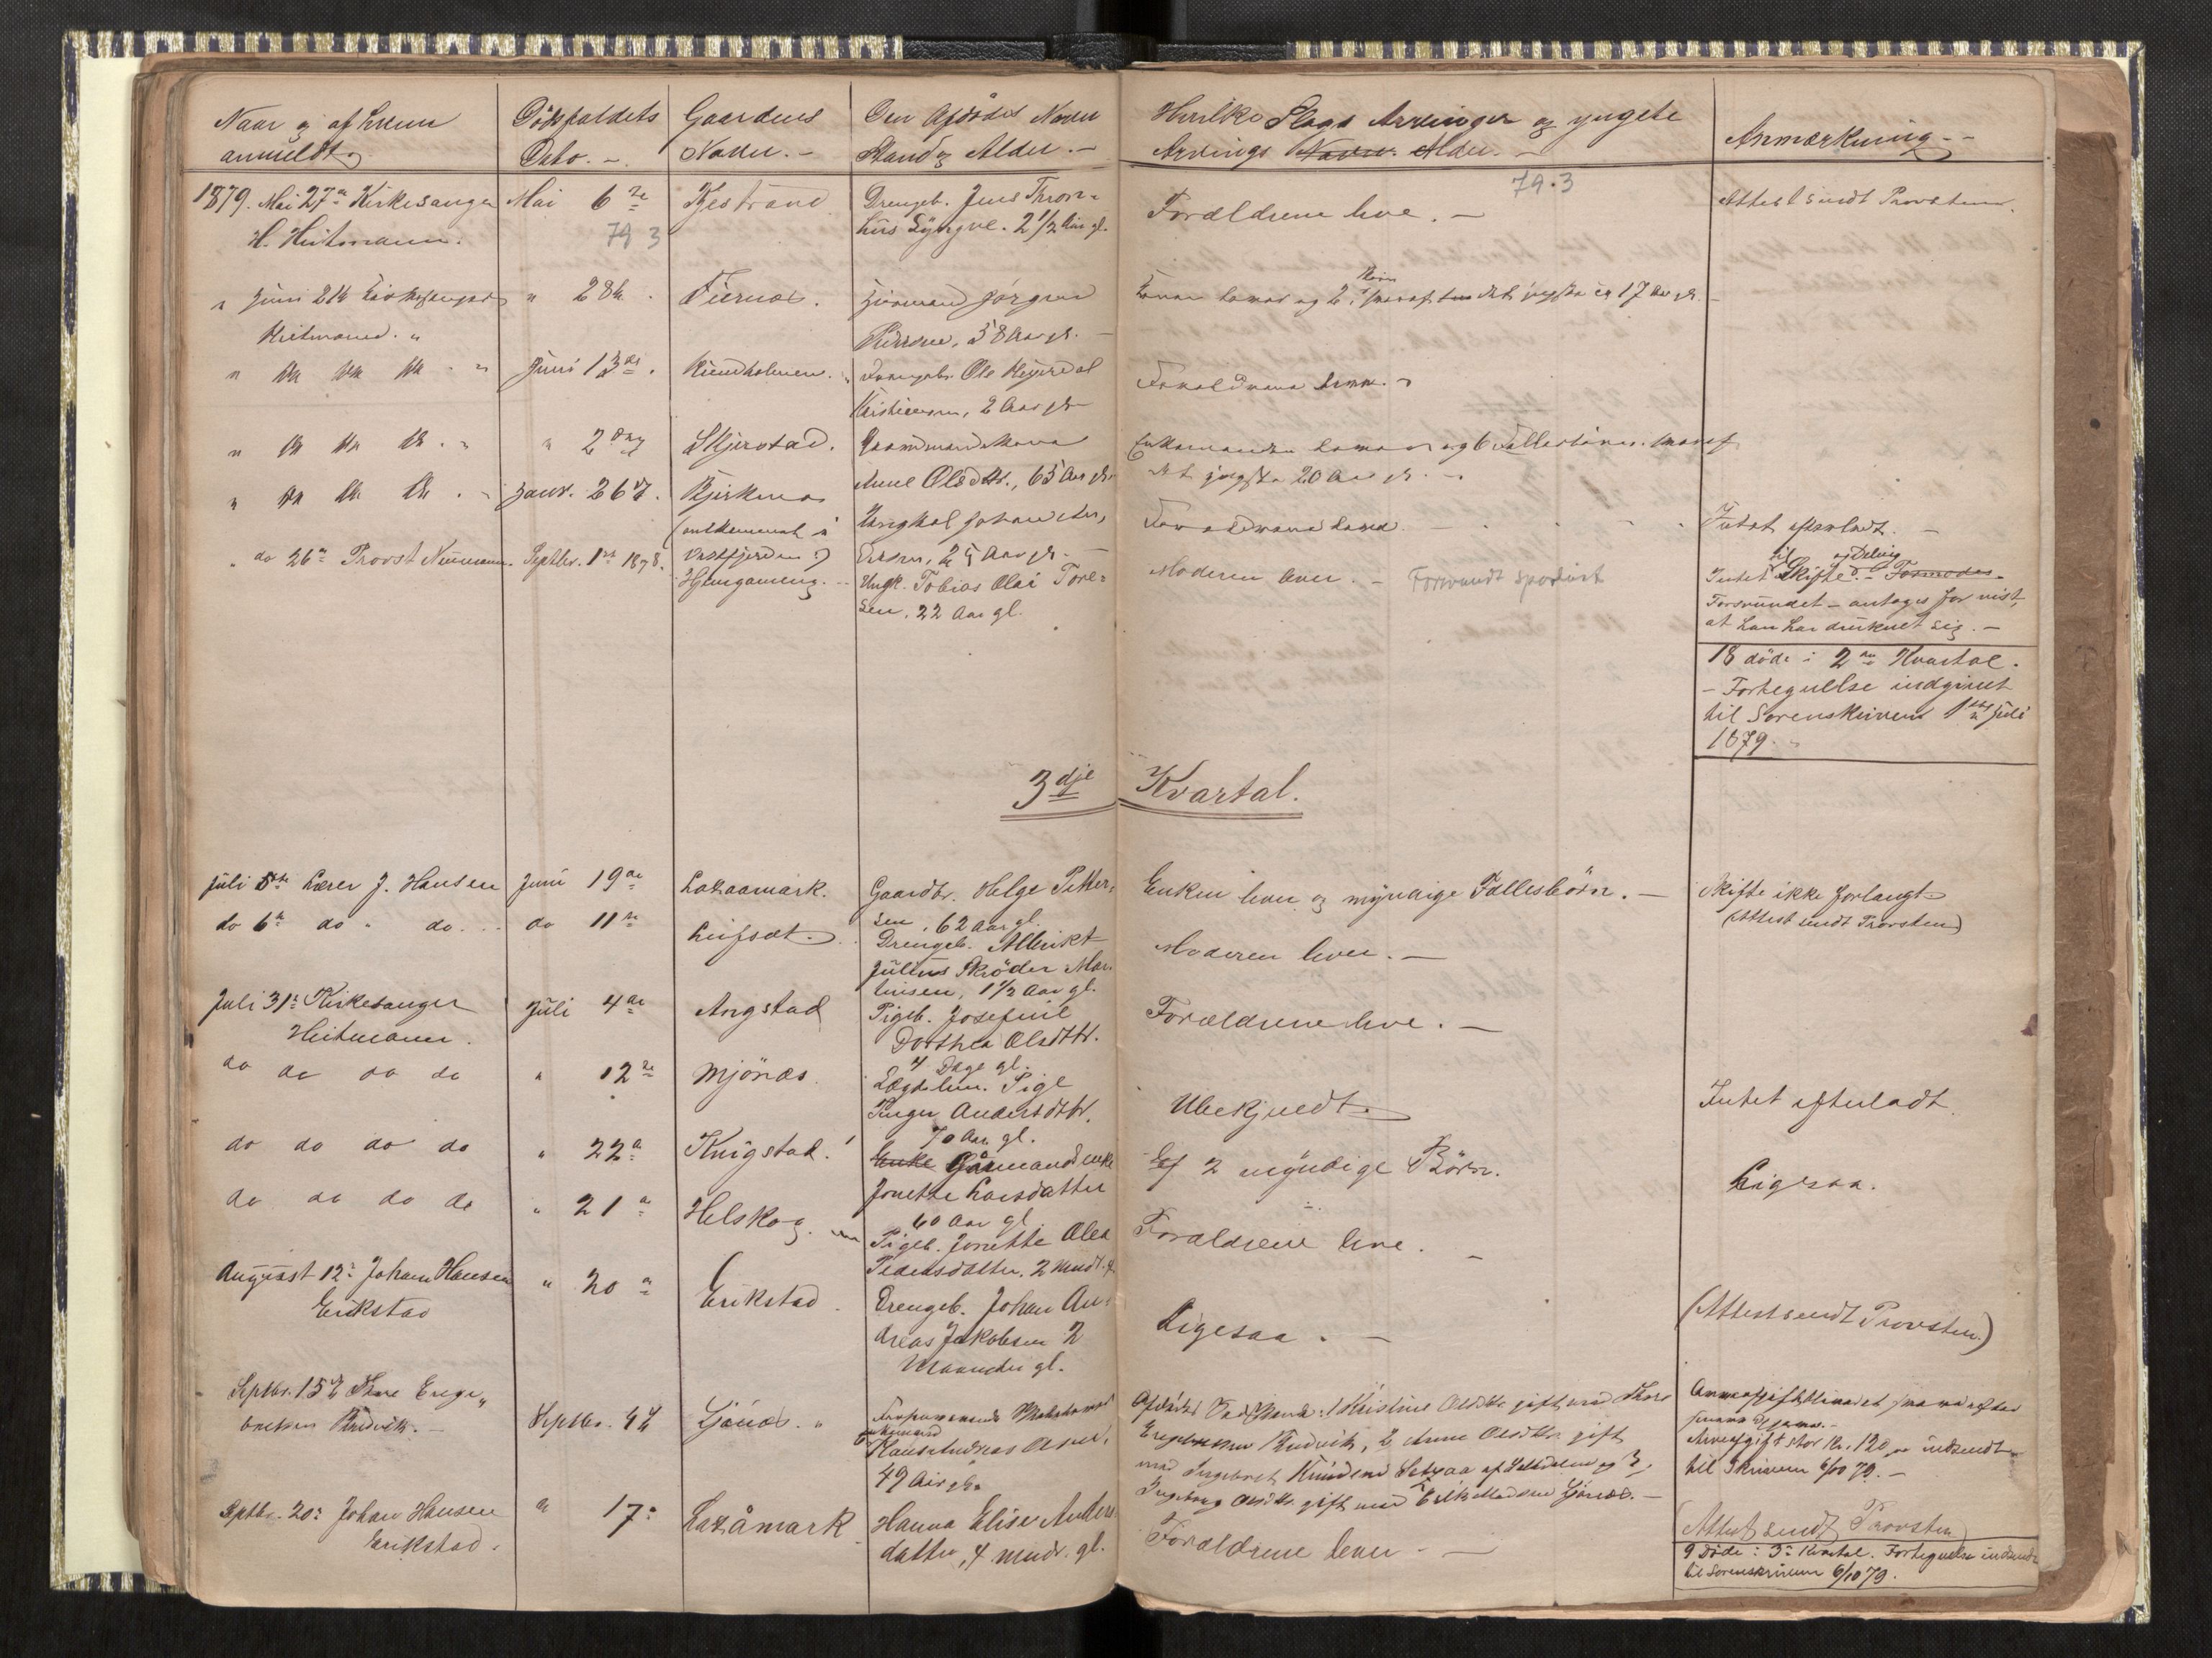 Naar og af hvem
anmeldt
Dödsfaldets
Dato. -
Gaardens
Navn. -
Den Afdödes Navn
Stand og Alder. -
Hvilke Slags Arvinger og yngste
Arvings Navn. Alder. -
Anmærkning. -
79.3
1879. Mai 27de Kirkesanger
H. Heitmann.
Mai 6te
79 3
Kjestrand
Drengeb. Jens Thron-
hus Lyngve. 2 1/2 Aar gl.
Forældrene leve. -
Attest sendt Provsten.
" Juni 21de Kirkesanger
Heitmann. "
" 28de .
Fiernes.
Jörgen
58 Aar gl. -
Konen lever og 2 Börn, hvoraf det yngste er 17 Aar gl. -
" do do do - "
Juni 13de .
Rundholmen. "
Drengebr. Ole Meyerdal
Kristiansen, 2 Aar gl.
Forældrene leve. -
" do do do . "
" 2den
Skjerstad.
Gaardmandskone
Anne Olsdtr., 65 Aar gl.
Enkemanden lever og 6 Fællesbörn, hvoraf
det yngste 20 Aar gl. -
" do do do . "
Janr. 26de .
Bjerknes
(omkommet i
Vestfjorden)
Ungkal Johan
25 Aar gl. -
Forældrene leve. -
Intet efterladt. -
" do 26de Provst Neumann.
Septbr. 1ste 1878.
Hjemgameng. -
Ungk. Tobias Olai Tore-
sen, 22 Aar gl.
Moderen lever. - Forsvundt sporlöst
Intet til Skifte og Deling. - Formodes
Forsvundet - antages for vist,
at han har druknet sig. -
18 döde i 2det Kvartal.
- Fortegnelse indgivet
til Sorenskriveren 1ste Juli
1879. -
3dje Kvartal.
Juli 5te Lærer J. Hansen
Juni 19de
Laxaamark.
Gaardbr. Helge Petter-
sen, 62 Aar gl.
Enken lever og myndige Fællesbörn. -
Skifte ikke forlangt
(Attest sendt Provsten)
do 6te do " do . .
do 11te
Leifset.
Drengeb. Albrikt
Julius Skröder Mar-
tinsen, 1 1/2 Aar gl.
Moderen lever. -
Juli 31te Kirkesanger
Heitmann.
Juli 4de
Angstad
Pigeb. Josefine
Dorthea Olsdtr.
4 Dage gl.
Forældrene leve. -
do do do do
" 12te
Mjönæs.
Lægdslem. Pige
Inger Andersdtr.
70 Aar gl.
Ubekjendt
Intet efterladt.
do do do do
" 22de
Knigstad.
Enke Gårmandsenke
Jonette Larsdatter
60 Aar gl.
Ef 2 myndige Börn.
Ligesaa.
do do do do
" 21de
Helskog.
Pigeb. Jonette Olea
Pedersdatter. 2 Mndr. gl.
Forældrene leve. -
August 12te Johan Hansen
Erikstad
" 20de
Erikstad.
Drengeb. Johan An-
dreas Jakobsen 2
Maaneder gl.
Ligesaa. -
(Attest sendt Provsten.)
Septbr. 15de Thore Enge-
bretsen Rudvik. -
Septbr. 4de
Ljönes. "
Hans Andreas Olsen,
49 Aar gl.
Afdödes Sødskende: 1 Kristine Olsdtr. gift med Thore
Engebretsen Rudvik, 2 Anne Olsdtr. gift
med Ingebret Knudsen Setsaa af Saltdalen og 3,
Ingeborg Olsdtr. gift med Erik Madsen Ljönes. -
Arveafgift stor Kr. 120 indsendt
til Skriveren 6/10 79. -
Septbr. 20de Johan Hansen
Erikstad.
" 17de
Laxåmark
Hanna Elise Anders-
datter, 4 Mndr. gl.
Forældrene lever. -
(Attest sendt Provsten)
9 Döde i 3de Kvartal. Fortegnelse indsendt
til Sorenskriveren 6/10 79.